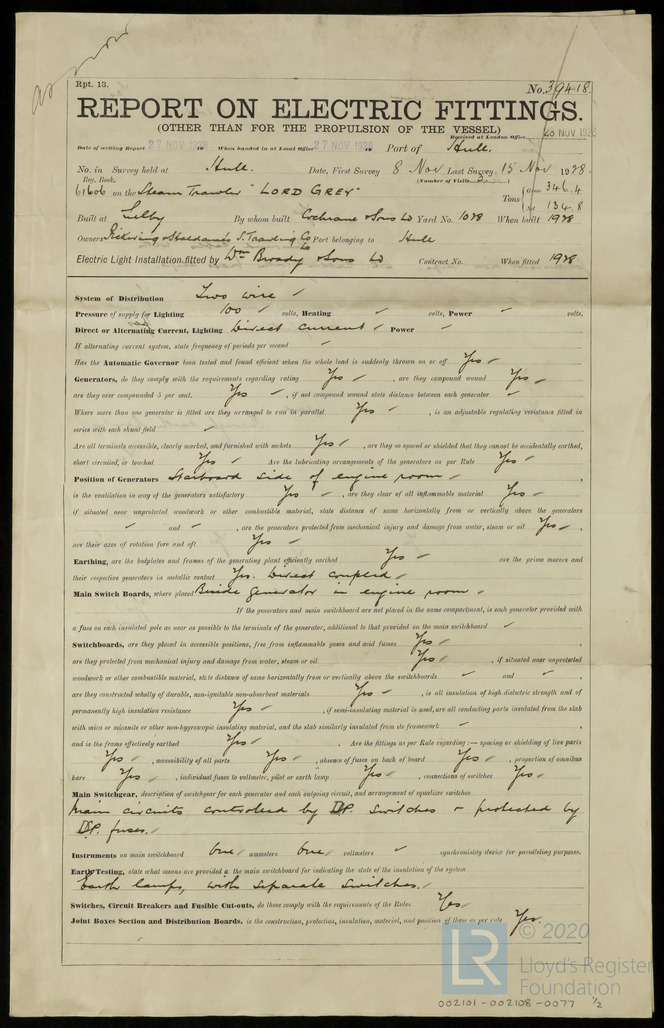 Rpt. 13.
No. 39418.
REPORT ON ELECTRIC FITTINGS.
(OTHER THAN FOR THE PROPULSION OF THE VESSEL)
Received at London Office 28 NOV 1928
Date of writing Report 27 NOV 1928 19 When handed in at Local Office 27 NOV 1928 19 Port of Hull.
No. in Survey held at Hull. Date, First Survey 8 Nov Last Survey 15 Nov 1928.
Reg. Book. (Number of Visits 3)
61606 on the Steam Trawler "LORD GREY" Tons Gross 346.4
Net 134.8
Built at Selby By whom built Cochrane & Sons Ld Yard No. 1028 When built 1928
Owners Pickering & Haldane's S. Trawling Co Ld Port belonging to Hull
Electric Light Installation fitted by Wm Broady & Sons Ld Contract No. When fitted 1928
System of Distribution Two wire
Pressure of supply for Lighting 100 volts, Heating volts, Power volts.
Direct or Alternating Current, Lighting Direct current Power
If alternating current system, state frequency of periods per second
Has the Automatic Governor been tested and found efficient when the whole load is suddenly thrown on or off Yes
Generators, do they comply with the requirements regarding rating Yes , are they compound wound Yes
are they over compounded 5 per cent. Yes , if not compound wound state distance between each generator
Where more than one generator is fitted are they arranged to run in parallel Yes , is an adjustable regulating resistance fitted in
series with each shunt field
Are all terminals accessible, clearly marked, and furnished with sockets Yes , are they so spaced or shielded that they cannot be accidentally earthed,
short circuited, or touched Yes Are the lubricating arrangements of the generators as per Rule Yes
Position of Generators Starboard side of engine room
is the ventilation in way of the generators satisfactory Yes , are they clear of all inflammable material Yes
if situated near unprotected woodwork or other combustible material, state distance of same horizontally from or vertically above the generators
and , are the generators protected from mechanical injury and damage from water, steam or oil Yes
are their axes of rotation fore and aft Yes
Earthing, are the bedplates and frames of the generating plant efficiently earthed Yes are the prime movers and
their respective generators in metallic contact Yes. Direct coupled
Main Switch Boards, where placed Beside generator in engine room
If the generators and main switchboard are not placed in the same compartment, is each generator provided with
a fuse on each insulated pole as near as possible to the terminals of the generator, additional to that provided on the main switchboard
Switchboards, are they placed in accessible positions, free from inflammable gases and acid fumes Yes
are they protected from mechanical injury and damage from water, steam or oil Yes , if situated near unprotected
woodwork or other combustible material, state distance of same horizontally from or vertically above the switchboards and
are they constructed wholly of durable, non-ignitable non-absorbent materials Yes , is all insulation of high dielectric strength and of
permanently high insulation resistance Yes , if semi-insulating material is used, are all conducting parts insulated from the slab
with mica or micanite or other non-hygroscopic insulating material, and the slab similarly insulated from its framework
and is the frame effectively earthed Yes . Are the fittings as per Rule regarding :— spacing or shielding of live parts
Yes , accessibility of all parts Yes , absence of fuses on back of board Yes , proportion of omnibus
bars Yes , individual fuses to voltmeter, pilot or earth lamp Yes , connections of switches Yes
Main Switchgear, description of switchgear for each generator and each outgoing circuit, and arrangement of equalizer switches
Main circuits controlled by DP. switches & protected by
DP. fuses.
Instruments on main switchboard One ammeters One voltmeters synchronising device for paralleling purposes.
Earth Testing, state what means are provided at the main switchboard for indicating the state of the insulation of the system
Earth lamps, with separate switches.
Switches, Circuit Breakers and Fusible Cut-outs, do these comply with the requirements of the Rules Yes
Joint Boxes Section and Distribution Boards, is the construction, protection, insulation, material, and position of these as per rule Yes.
LR
© 2020
Lloyd's Register
Foundation
002101-002108-0077 1/2